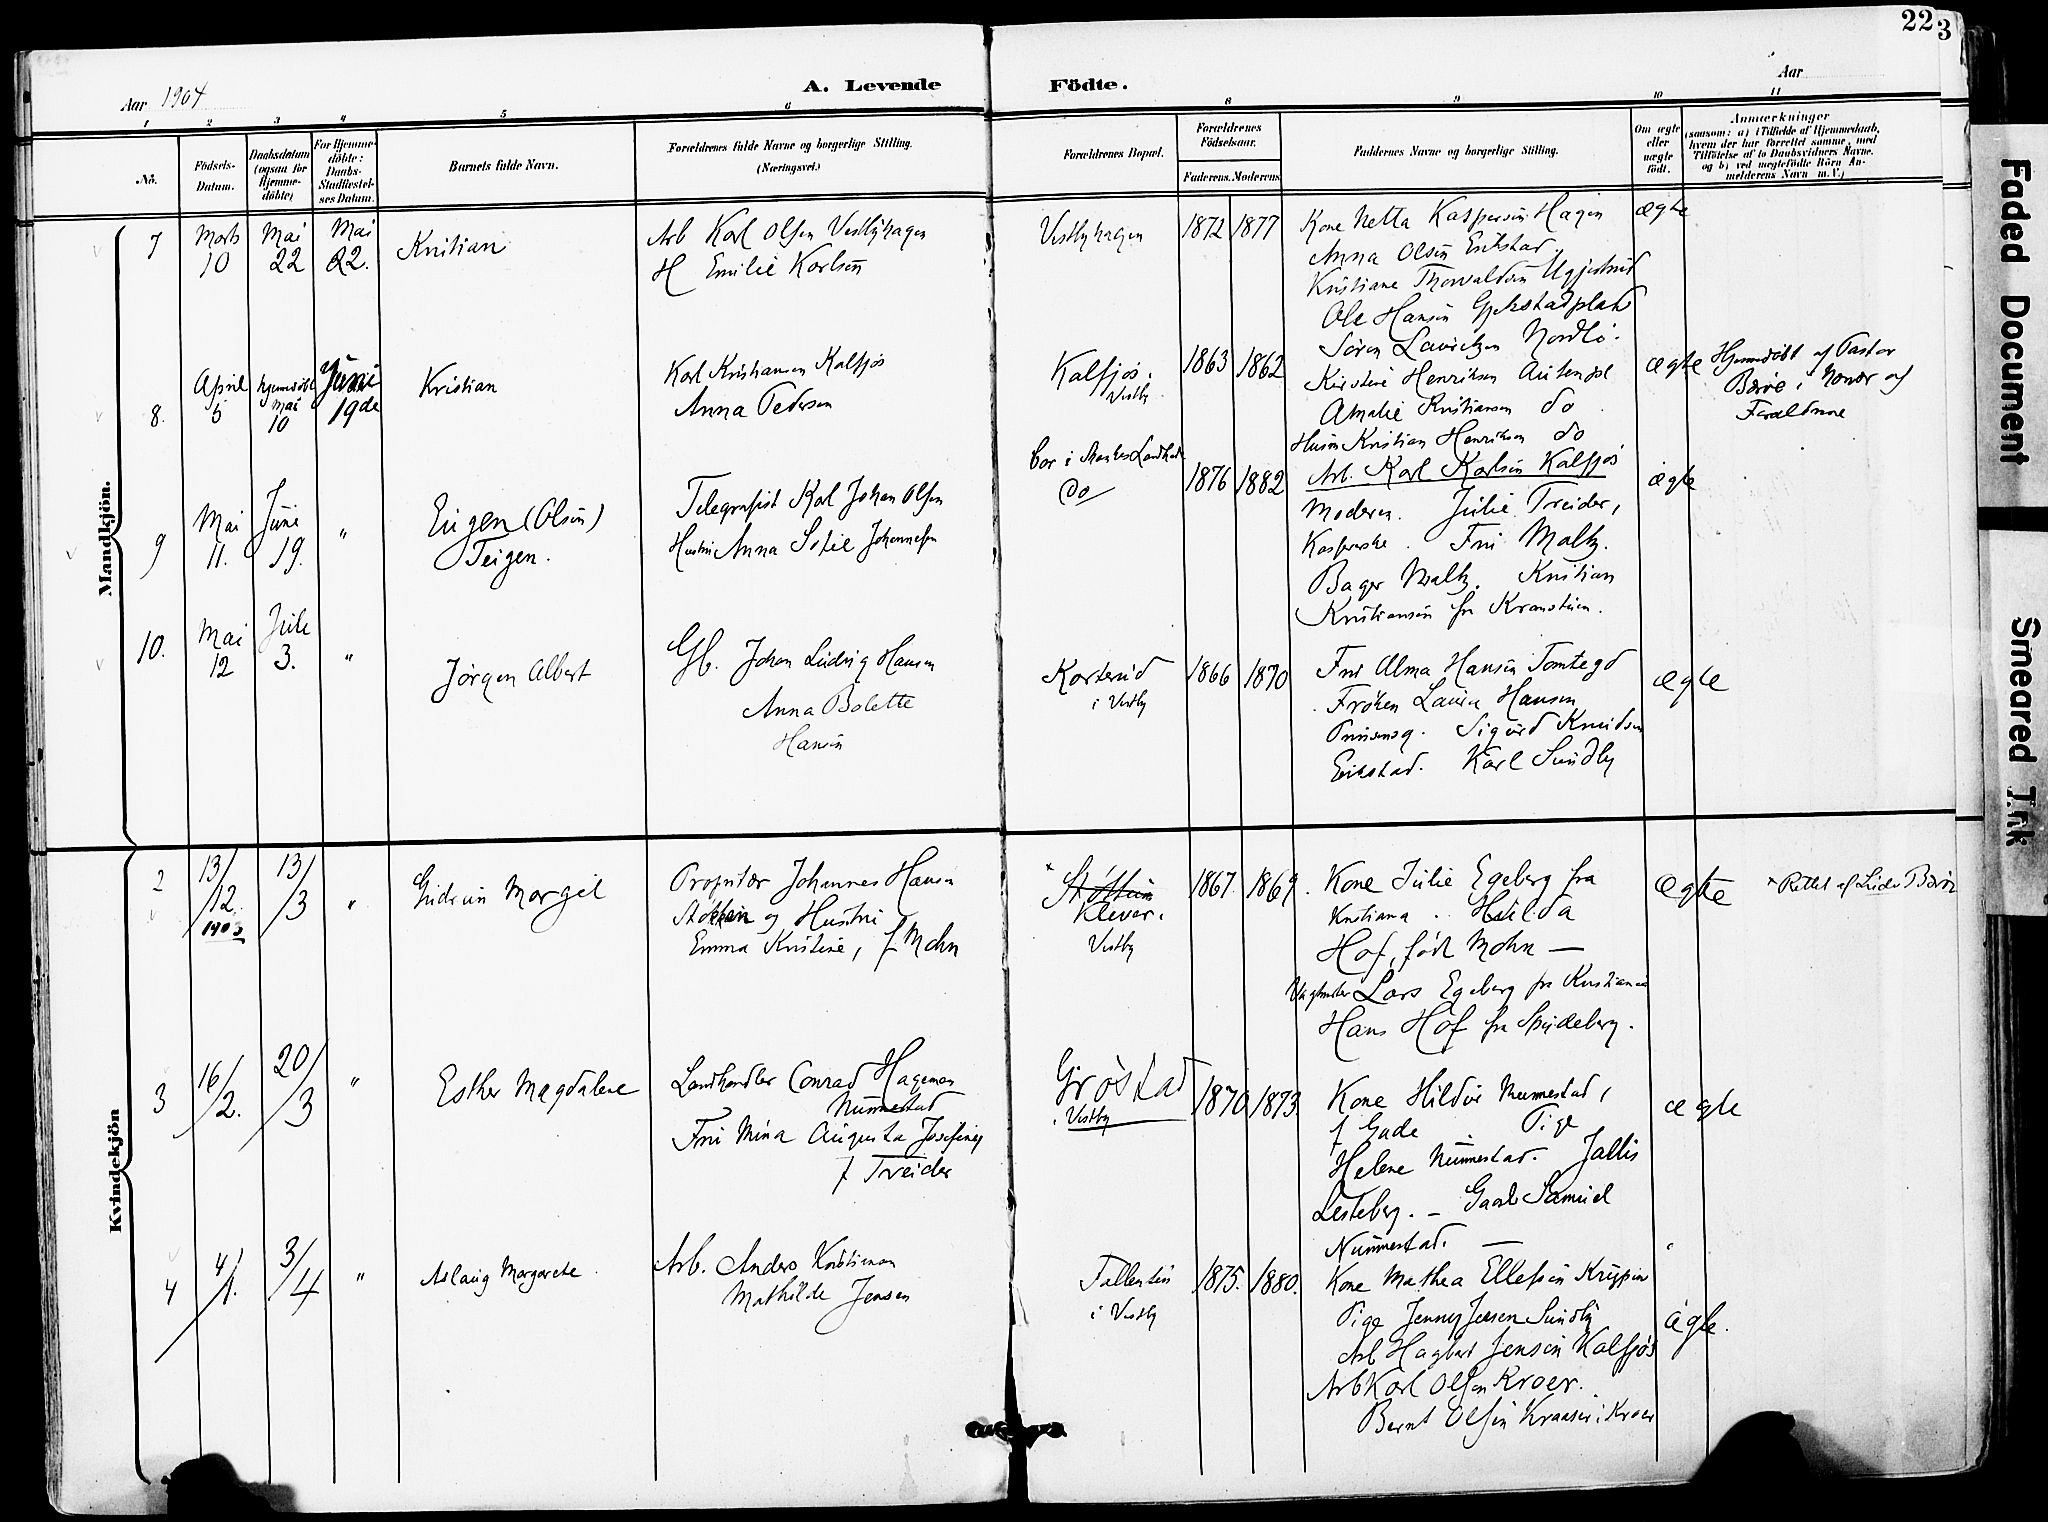 22
3
Aar 1904
A. Levende Födte.
Aar
1 2 3 4 5 6 8 9 10 11
No.
Födsels-Datum.
Daabsdatum (ogsaa for Hjemme-döbte)
For Hjemme-döbte: Daabs-Stadfæstel-ses Datum.
Barnets fulde Navn.
Forældrenes fulde Navne og borgerlige Stilling. (Næringsvei.)
Forældrenes Bopæl.
Forældrenes Födselsaar.
Faderens. Moderens.
Faddernes Navne og borgerlige Stilling.
Om ægte eller uægte födt.
Anmærkninger
(saasom: a) i Tilfælde af Hjemmedaab, hvem der har forrettet samme, med Tilföielse af to Daabsvidners Navne. og b) ved uægtefödte Börn An-melderens Navn m. V.)
Mandkjön.
7 Marts 10 Mai 22 Mai 22. Kristian
Arb Karl Olsen Vestbyhagen
H Emilie Karlsen
Vestbyhagen 1872 1877
Kone Netta Kaspersen Hagen
Anna Olsen Erikstad
Kristiane Thorvaldsen
Ole Hansen
Søren Lauritzen Nordbö.
ægte
8. April 5 hjemmedöbt Mai 10 Juni 19de Kristian
Karl Kristiansen Kalfjøs
Anna Pedersen
Kalfjøs. Vestby 1863 1862
Kirstine Henriksen
Amalie Kristiansen do
Kristian Henriksen do
Arb. Karl Karlsen Kalfjøs
ægte
Hjemmedöbt af Pastor
Barøe i Nærvær af
Forældrene
9 Mai 11. Juni 19. " Eugen (Olsen)
Teigen.
Telegrafist Karl Johan Olsen
Hustru Anna Sofie Johannesen
bor i
Do 1876 1882
Moderen. Julie Treider,
Fru Maltz.
Bager Maltz. Kristian
Kristiansen fra
ægte
10. Mai 12 Juli 3. " Jørgen Albert
Gb. Johan Ludvig Hansen
Anna Bolette
Hansen
Korterud
i Vestby 1866 1870
Fru Alma Hansen
Frøken Laura Hansen
Sigurd Knudsen
Erikstad. Karl Sundby
ægte
Kvindekjön
2 13/12 1903 13/3 " Gudrun Margit
Proprietær Johannes Hansen
og Hustru
Emma Kristine, f Mohn
Kløver.
Vestby 1867. 1869.
Kone Julie Egeberg fra
Kristiania. Hilda
Hof, født Mohn —
Lars Egeberg fra Kristiania
Hans Hof fra Spydeberg.
ægte
× Rettet af
3 16/2. 20/3 " Esther Magdalene
Landhandler Conrad Hageman
Nummestad
Fru Mina Augusta Josefine
f Treider
Grøstad
i Vestby 1870 1873.
Kone Nummestad,
f Gade. Pige
Helene Nummestad.
Lesteberg. — Gaarb Samuel
Nummestad. —
ægte
4 4/1. 3/4 " Aslaug Margarete
Arb. Anders Kristiansen
Mathilde Jensen
i Vestby 1875. 1880.
Kone Mathea Ellefsen
Pige Jenny Jensen Sundby
Arb Hagbart Jensen Kalfjøs
Arb Karl Olsen Kroer.
Bernt Olsen i Kroer
ægte.
Faded Document
Smeared Trik